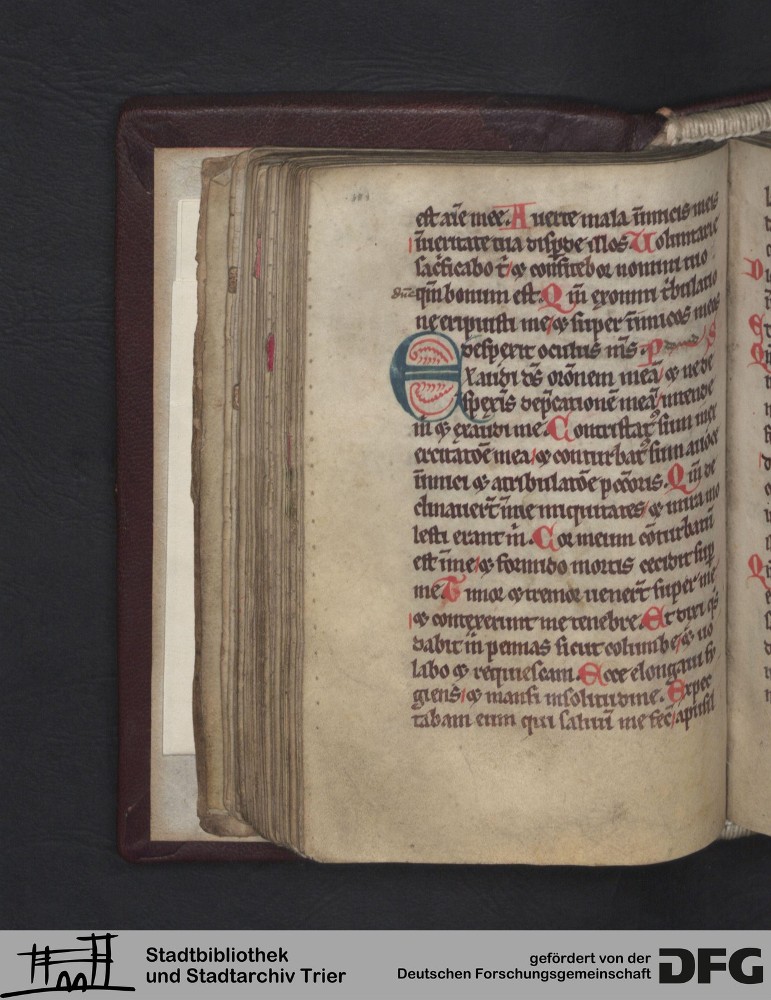 est aīe mee. Auerte mala īimicis meis
⁊ īueritate tua disp̄de illos Uoluntarie
sac̄ficabo t̄ ⁊ confitebor nomini tuo
qm̄ bonum est. Qm̄ ex omni t̄bulatio
ne eripuisti me ⁊ super īimicos meos
despexit oculus m̄s. P S
Exaudi dš orōnem meā ⁊ ne de
spexīs dep̄cationē meā intende
m̄ ⁊ exaudi me. Contristatꝰ sum in ex
ercitatōe mea ⁊ conturbatꝰ sum a uoce
īimici ⁊ a tribulatōe pctōris. Qm̄ de
clinauer̄t in me iniquitates ⁊ in ira mo
lesti erant m̄. Cor meum cōturbatū
est īme ⁊ formido mortis cecidit suꝑ
me. Timor ⁊ tremor uener̄t super me
⁊ contexerunt me tenebre. Et dixi qˢ
dabit m̄ pennas sicut columbe ⁊ uo
labo ⁊ requiescam. Ecce elongaui fu
giens ⁊ mansi in solitudine. Expec
tabam eum qui saluū me fec̄ a pusil
Stadtbibliothek
und Stadtarchiv Trier
gefördert von der
Deutschen Forschungsgemeinschaft
DFG